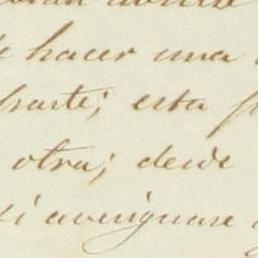 hacer una
parte; esta
otra; desde
si averiguase